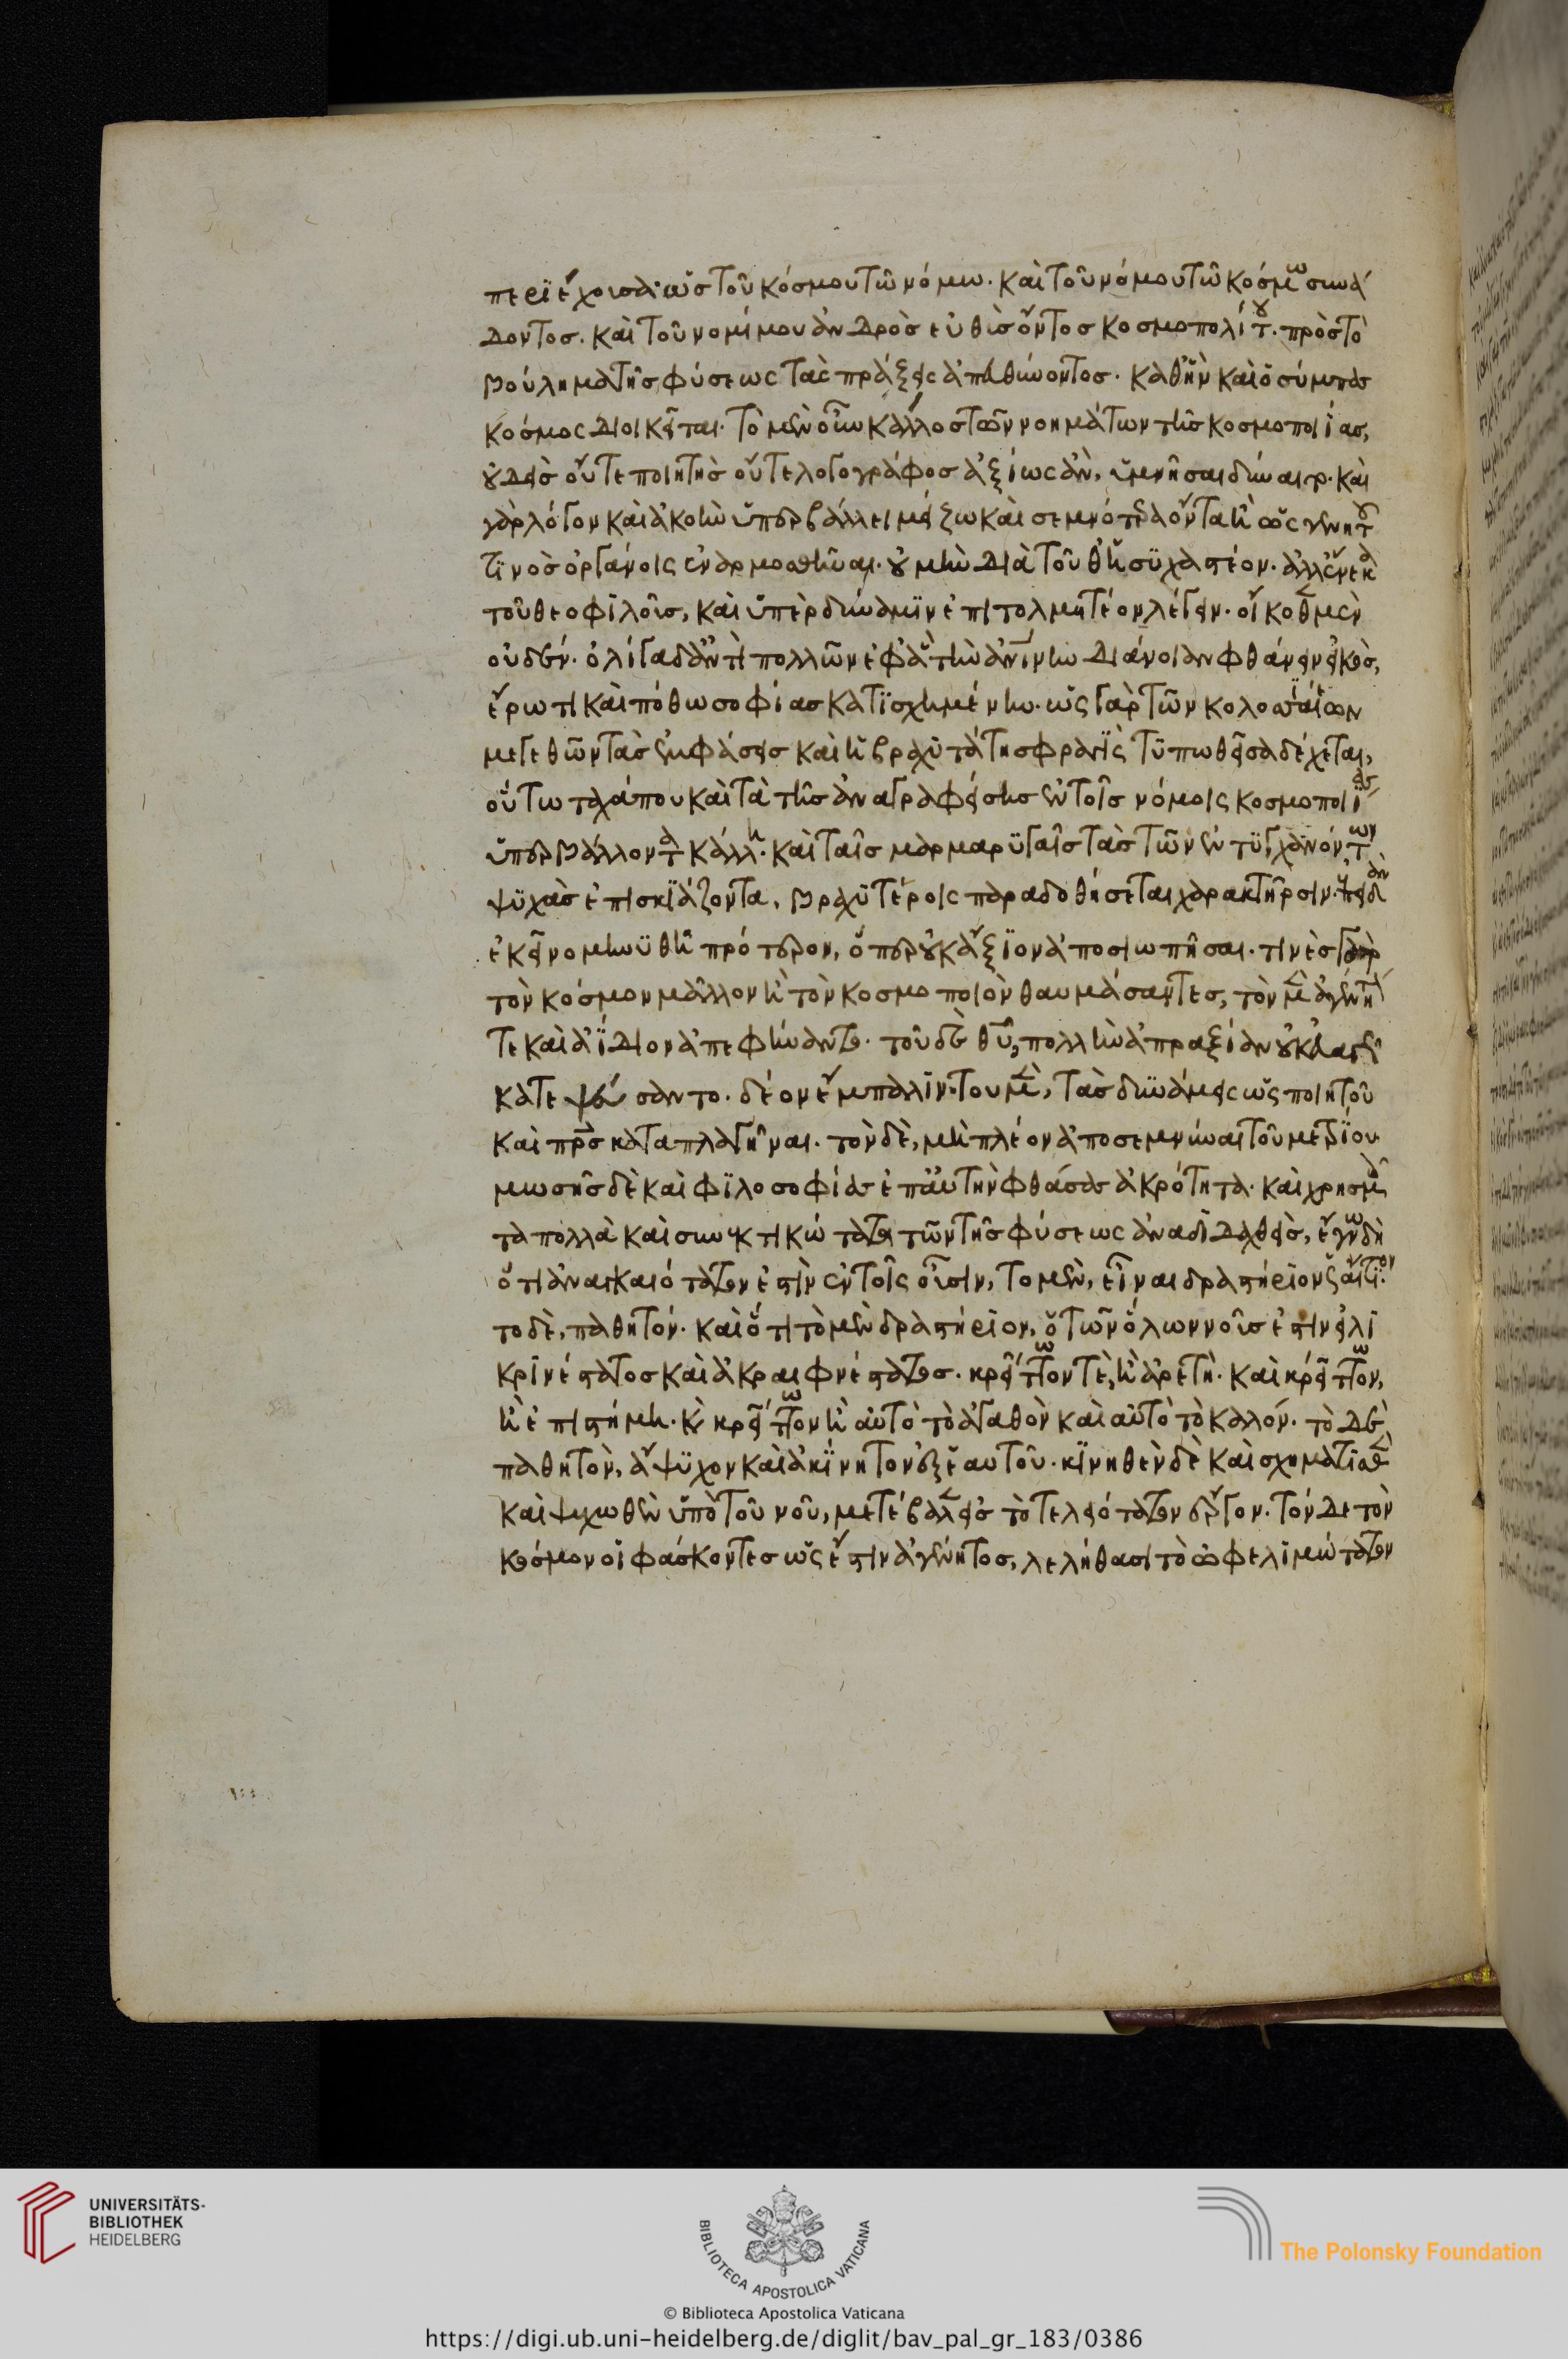 περιέχουσα· ὡς τοῦ κόσμου τῶ νόμω. καὶ τοῦ νόμου τῶ κόσμω συνά
δοντος. καὶ τοῦ νομίμου ἀνδρὸς εὐθὺς ὄντος κοσμοπολίτου. πρὸς τὸ
βούλημα τῆς φύσεως τὰς πράξεις ἀπευθύνοντος. καθ' ἣν καὶ ὁ σύμπας
κόσμος διοικεῖται. τὸ μὲν οὖν κάλλος τῶν νοημάτων τῆς κοσμοποιίας,
οὐδεὶς οὔτε ποιητὴς οὔτε λογογράφος ἀξίως ἂν, ὑμνῆσαι δύναιτο. καὶ
γὰρ λόγον καὶ ἀκοὴν ὑπερβάλλει μείζω καὶ σεμνότερα ὄντα ἢ ὡς θνητοῦ
τινὸς ὀργάνοις ἐναρμοσθῆναι. οὐ μὴν διὰ τοῦθ' ἡσυχαστέον. ἀλλ' ἕνεκα
τοῦ θεοφιλοῦς, καὶ ὑπὲρ δύναμιν ἐπιτολμητέον λέγειν. οἴκοθεν μὲν
οὐδέν. ὀλίγα δ' ἀντὶ πολλῶν ἐφ' ἃ τὴν ἀνθρωπίνην διάνοιαν φθάνειν εἰκὸς,
ἔρωτι καὶ πόθω σοφίας κατισχημένην. ὡς γὰρ τῶν κολοσσιαίων
μεγεθῶν τὰς ἐμφάσεις καὶ ἡ βραχυτάτη σφραγὶς τυπωθεῖσα δέχεται,
οὕτω τάχα που καὶ τὰ τῆς ἀναγραφείσης ἐν τοῖς νόμοις κοσμοποιίας
ὑπερβάλλοντα κάλλη. καὶ ταῖς μαρμαρυγαῖς τὰς τῶν ἐντυγχανόντων
ψυχὰς ἐπισκιάζοντα, βραχυτέροις παραδοθήσεται χαρακτῆρσιν. ἐπειδὰν
ἐκεῖνο μηνυθῆ πρότερον, ὅπερ οὐκ ἄξιον ἀποσιωπῆσαι. τινὲς γὰρ
τὸν κόσμον μᾶλλον ἢ τὸν κοσμοποιὸν θαυμάσαντες, τὸν μὲν ἀγένητόν
τε καὶ ἀΐδιον ἀπεφήναντο. τοῦ δὲ θεοῦ, πολλὴν ἀπραξίαν οὐκ εὐαγῶς
κατεψεύσαντο. δέον ἔμπαλιν· τοῦ μὲν, τὰς δυνάμεις ὡς ποιητοῦ
καὶ πατρὸς καταπλαγῆναι. τὸν δὲ, μὴ πλέον ἀποσεμνῦναι τοῦ μετρίου.
μωσῆς δὲ καὶ φιλοσοφίας ἐπ' αὐτὴν φθάσας ἀκρότητα. καὶ χρησμοῖς
τὰ πολλὰ καὶ συνεκτικώτατα τῶν τῆς φύσεως ἀναδιδαχθεὶς, ἔγνω δὴ
ὅτι ἀναγκαιότατόν ἐστιν ἐν τοῖς οὖσιν, τὸ μὲν, εἶναι δραστήριον αἴτιον.
τὸ δὲ, παθητόν. καὶ ὅτι τὸ μὲν δραστήριον, ὁ τῶν ὅλων νοῦς ἐστὶν εἰλι
κρινέστατος καὶ ἀκραιφνέστατος. κρείττων τὲ, ἢ ἀρετὴ. καὶ κρείττων,
ἢ ἐπιστήμη. καὶ κρείττων ἢ αὐτὸ τὸ ἀγαθὸν καὶ αὐτὸ τὸ καλόν. τὸ δὲ
παθητὸν, ἄψυχον καὶ ἀκίνητον ἐξ ἑαυτοῦ. κινηθὲν δὲ καὶ σχηματισθὲν
καὶ ψυχωθὲν ὑπὸ τοῦ νοῦ, μετέβαλεν εἰς τὸ τελειότατον ἔργον. τόνδε τὸν
κόσμον οἱ φάσκοντες ὡς ἔστιν ἀγένητος, λελήθασι τὸ ὠφελιμώτατον
UNIVERSITÄTS-
BIBLIOTHEK
HEIDELBERG
BIBLIOTECA APOSTOLICA VATICANA
The Polonsky Foundation
© Biblioteca Apostolica Vaticana
https://digi.ub.uni-heidelberg.de/diglit/bav_pal_gr_183/0386